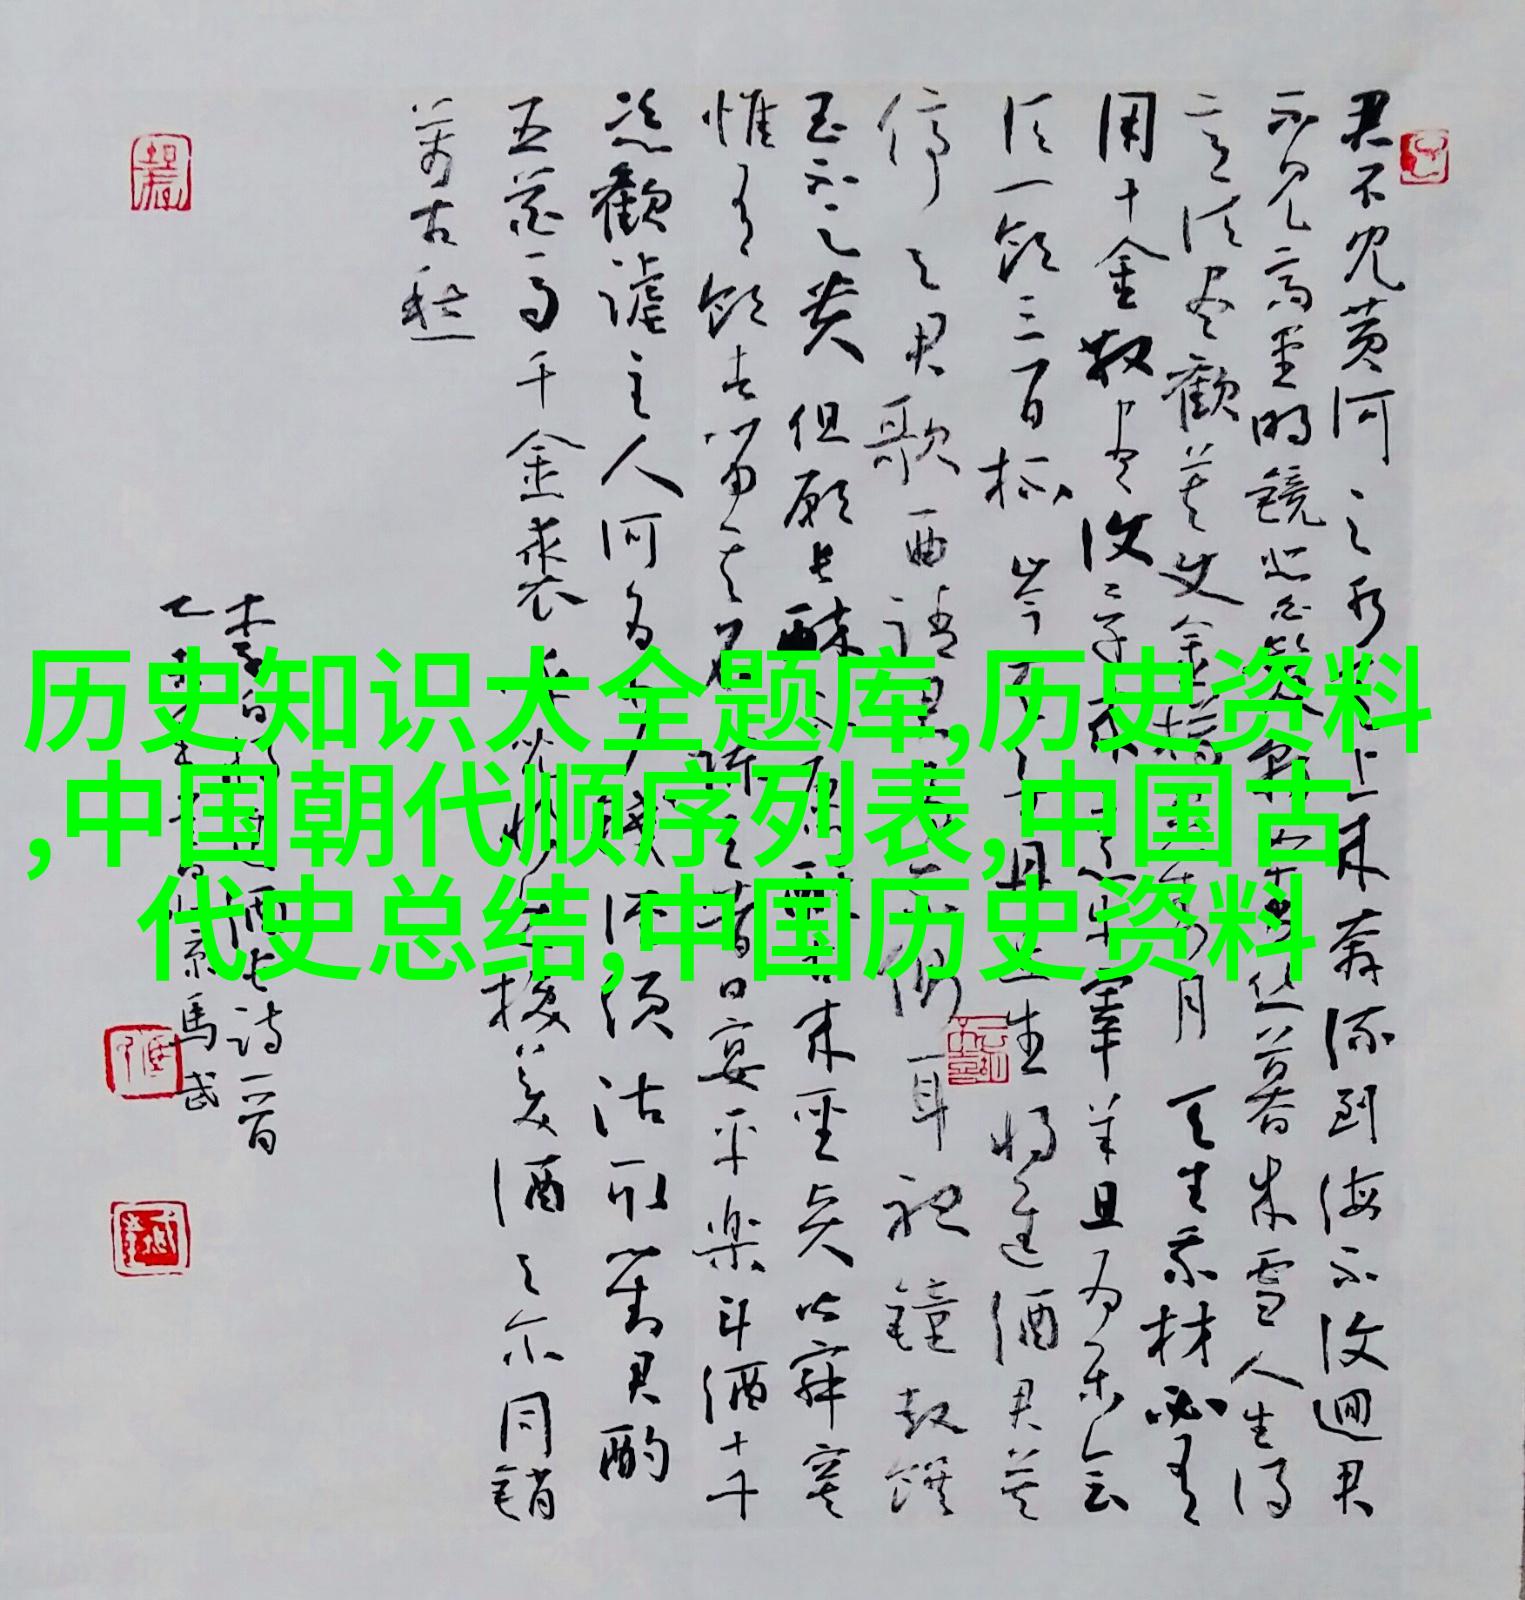 君不見黄河之水天上来奔流到海不復迴君
不见高堂明镜悲白髮朝如青丝暮成雪人生得
意须尽歡莫使金樽空對月天生我材必有
用千金散尽復宰羊且为乐会
须一饮三百杯岑丘生将進酒君莫
停与君歌一曲請君侧耳聴鐘鼓馔
玉不足贵但願长醉不願醒古来圣贤皆寂寞
惟有饮者留其名陳王昔日宴平楽斗酒十千
恣歡謔主人何为少錢径须沽取對君酌
五花马千金裘呼児将出换美酒与尔同銷
萬古愁
李白将進酒诗一首
历史知识大全题库,历史资料
,中国朝代顺序列表,中国古
代史总结,中国历史资料